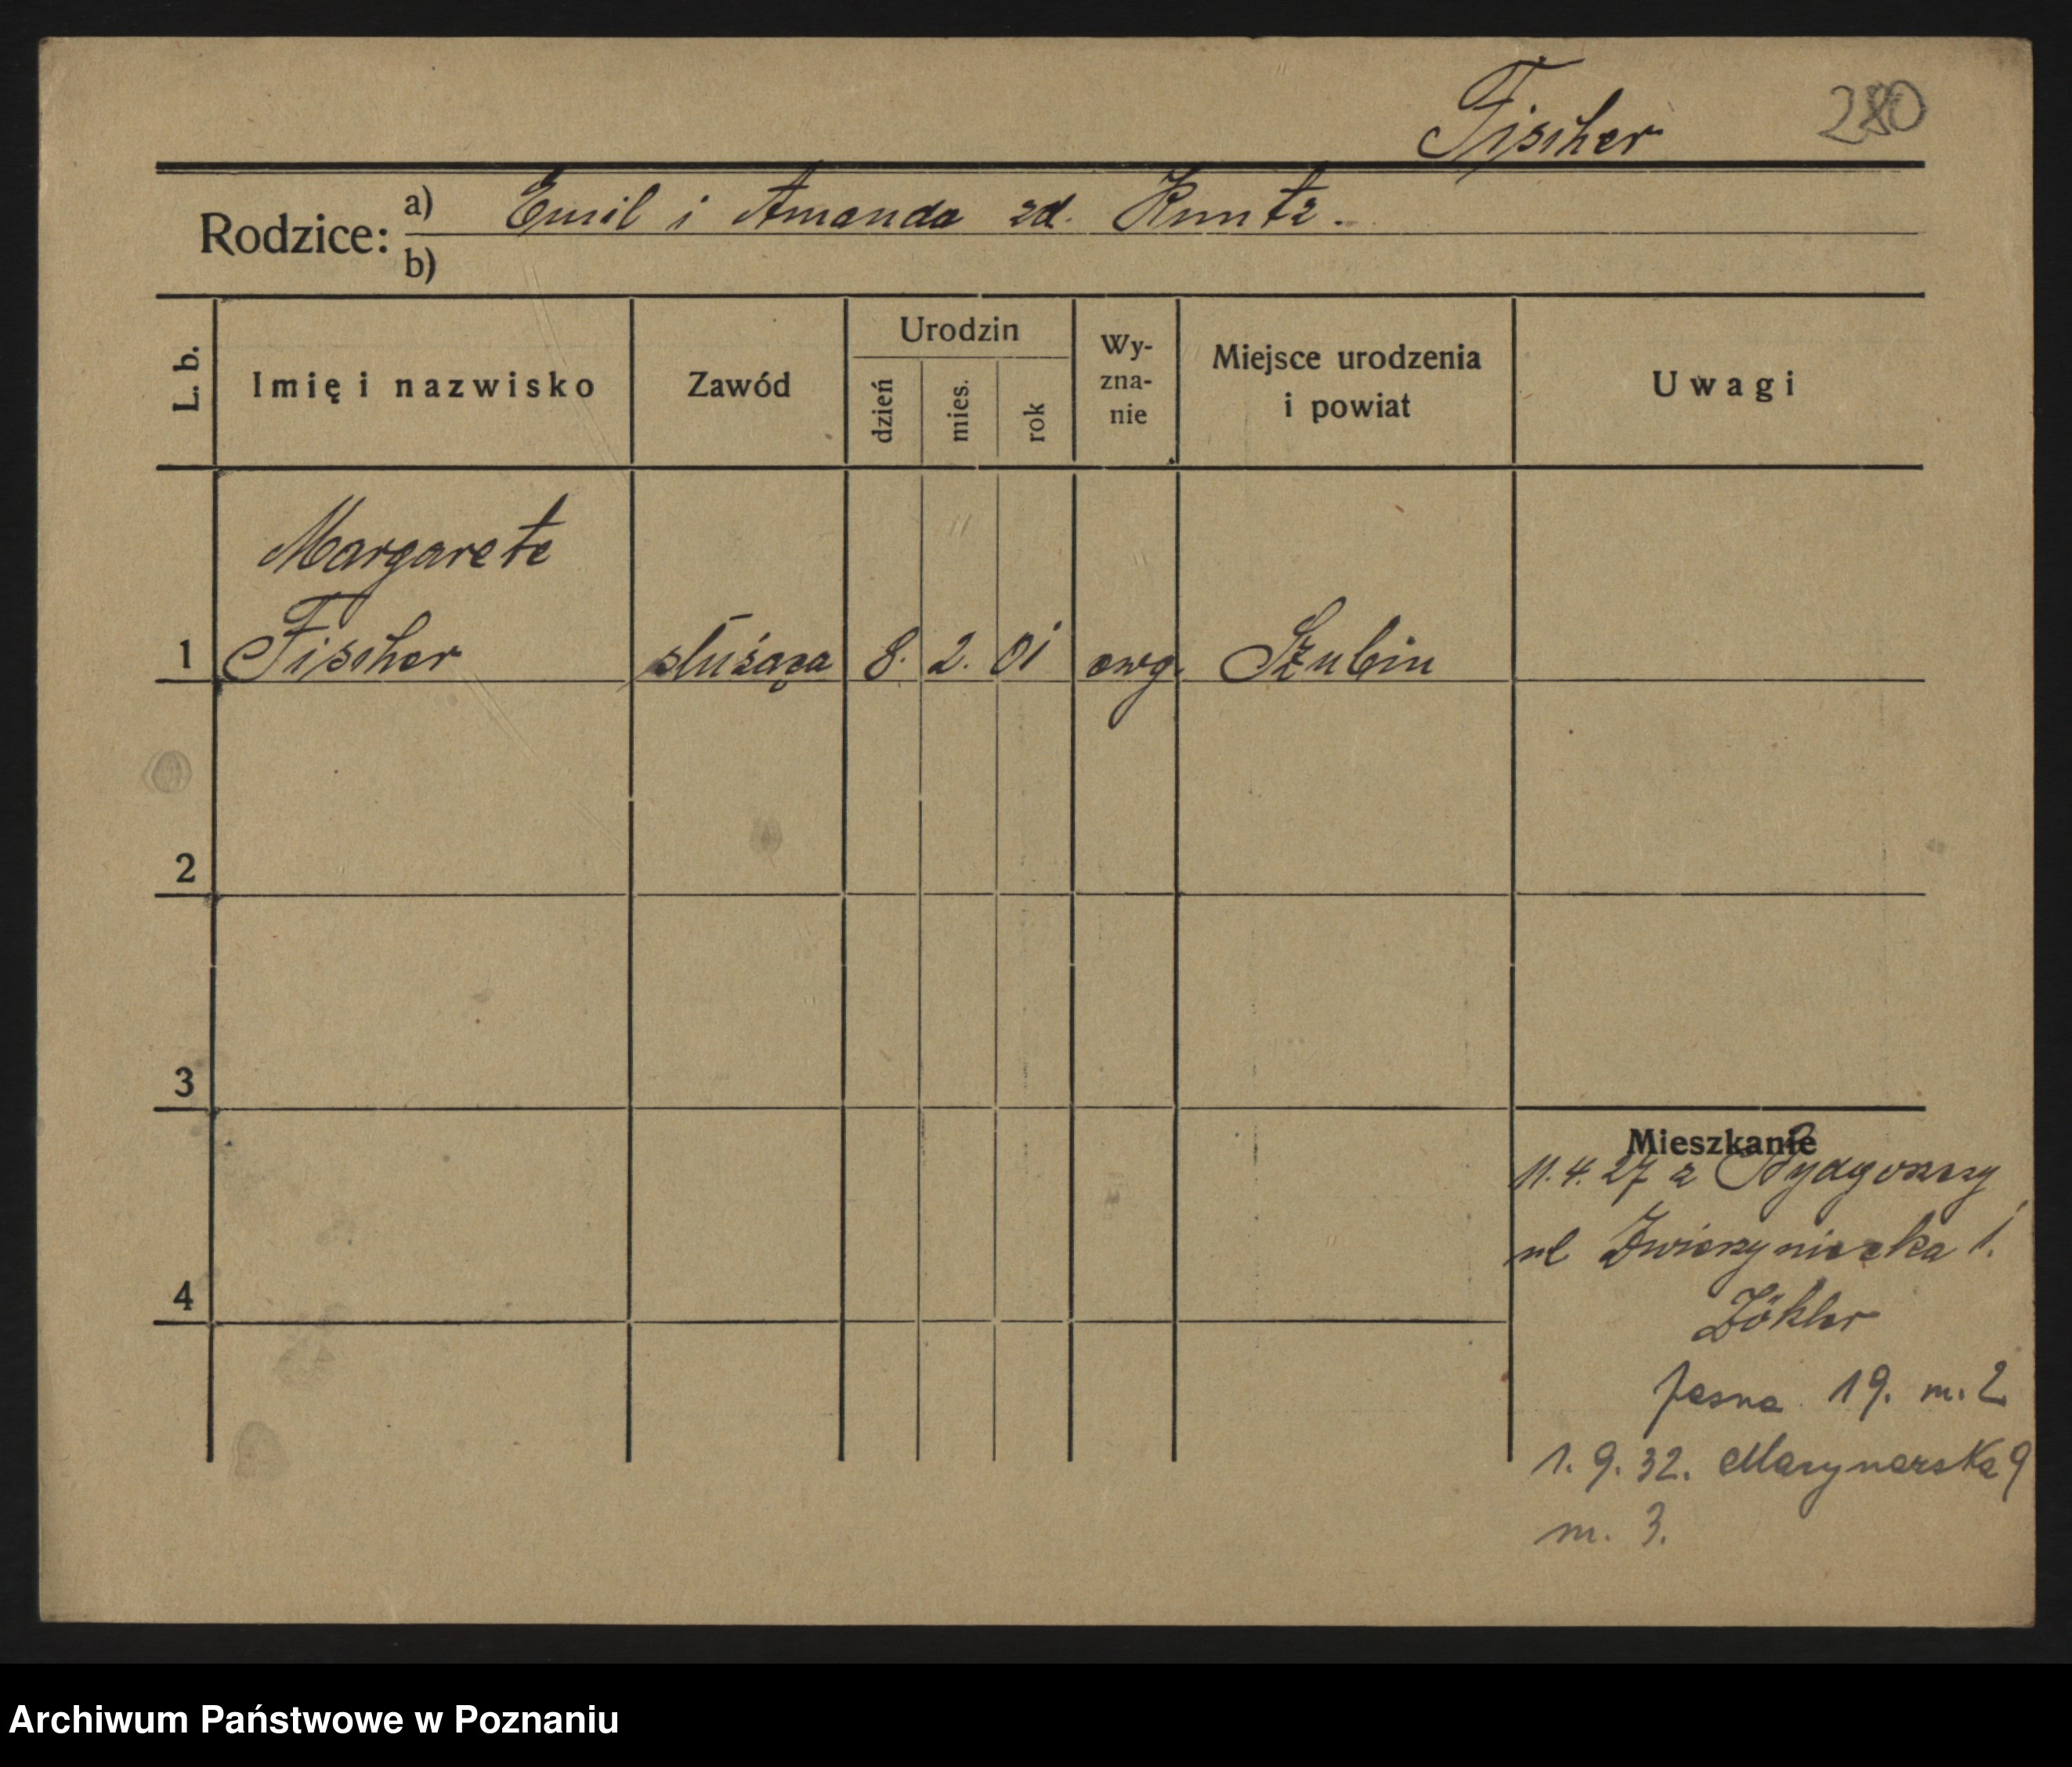 Fischer 280
Rodzice: a) Emil i Amanda zd. Kuntz.
b)
L. b. Imię i nazwisko Zawód Urodzin dzień mies. rok Wy-zna-nie Miejsce urodzenia i powiat Uwagi
Margarete
1 Fischer służąca 8. 2. 01 ewg. Szubin
2
3
Mieszkanie
11.4.27 z Bydgoszczy
ul Zwierzyniecka 1.
4
Zökler
Jasna 19. m. 2
1. 9. 32. Marynarska 9
m. 3.
Archiwum Państwowe w Poznaniu